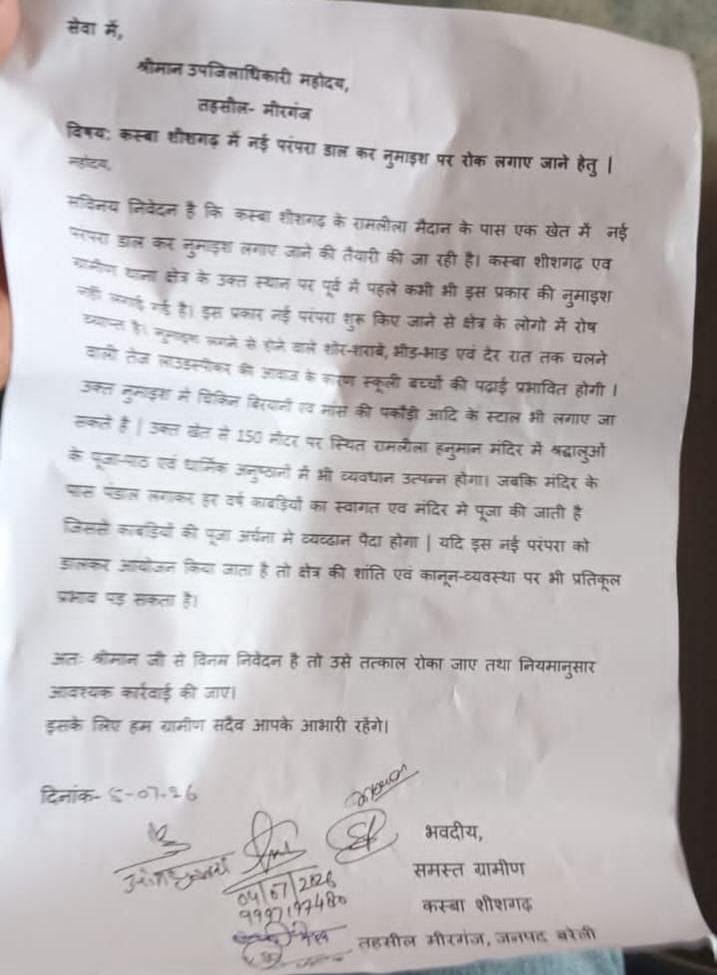 सेवा में,
श्रीमान उपजिलाधिकारी महोदय,
तहसील- मीरगंज
विषय: कस्बा शीशगढ़ में नई परंपरा डाल कर नुमाइश पर रोक लगाए जाने हेतु |
महोदय,
सविनय निवेदन है कि कस्बा शीशगढ़ के रामलीला मैदान के पास एक खेत में नई
परंपरा डाल कर नुमाइश लगाए जाने की तैयारी की जा रही है। कस्बा शीशगढ़ एवं
ग्रामीण थाना क्षेत्र के उक्त स्थान पर पूर्व में पहले कभी भी इस प्रकार की नुमाइश
नहीं लगाई गई है। इस प्रकार नई परंपरा शुरू किए जाने से क्षेत्र के लोगो में रोष
व्याप्त है। नुमाइश लगने से होने वाले शोर-शराबे, भीड-भाड एवं देर रात तक चलने
वाली तेज लाउडस्पीकर की आवाज के कारण स्कूली बच्चों की पढ़ाई प्रभावित होगी |
उक्त नुमाइश मे चिकिन बिरयानी एवं मांस की पकौड़ी आदि के स्टाल भी लगाए जा
सकते है | उक्त खेत से 150 मीटर पर स्थित रामलीला हनुमान मंदिर में श्रद्धालुओं
के पूजा-पाठ एवं धार्मिक अनुष्ठानों में भी व्यवधान उत्पन्न होगा। जबकि मंदिर के
पास पंडाल लगाकर हर वर्ष कावड़ियों का स्वागत एव मंदिर मे पूजा की जाती है
जिससे कावड़ियों की पूजा अर्चना मे व्यव्धान पैदा होगा | यदि इस नई परंपरा को
डालकर आयोजन किया जाता है तो क्षेत्र की शांति एवं कानून-व्यवस्था पर भी प्रतिकूल
प्रभाव पड़ सकता है।
अतः श्रीमान जी से विनम्र निवेदन है तो उसे तत्काल रोका जाए तथा नियमानुसार
आवश्यक कार्रवाई की जाए।
इसके लिए हम ग्रामीण सदैव आपके आभारी रहेंगे।
दिनांक- 5-07-26
भवदीय,
समस्त ग्रामीण
04/07/2026
कस्बा शीशगढ़
9997197480
तहसील मीरगंज, जनपद बरेली